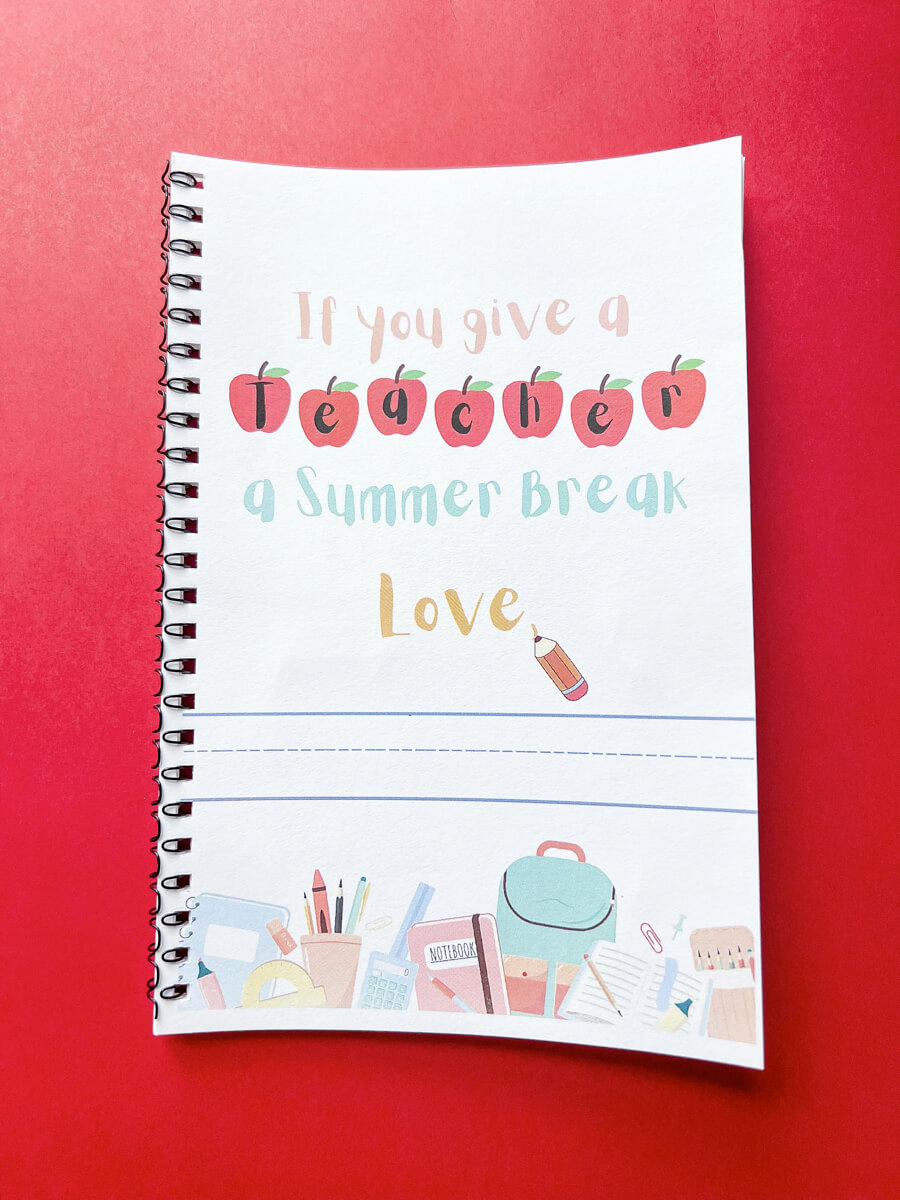 If you give a
Teacher
a Summer Break
Love,
NOTEBOOK
0